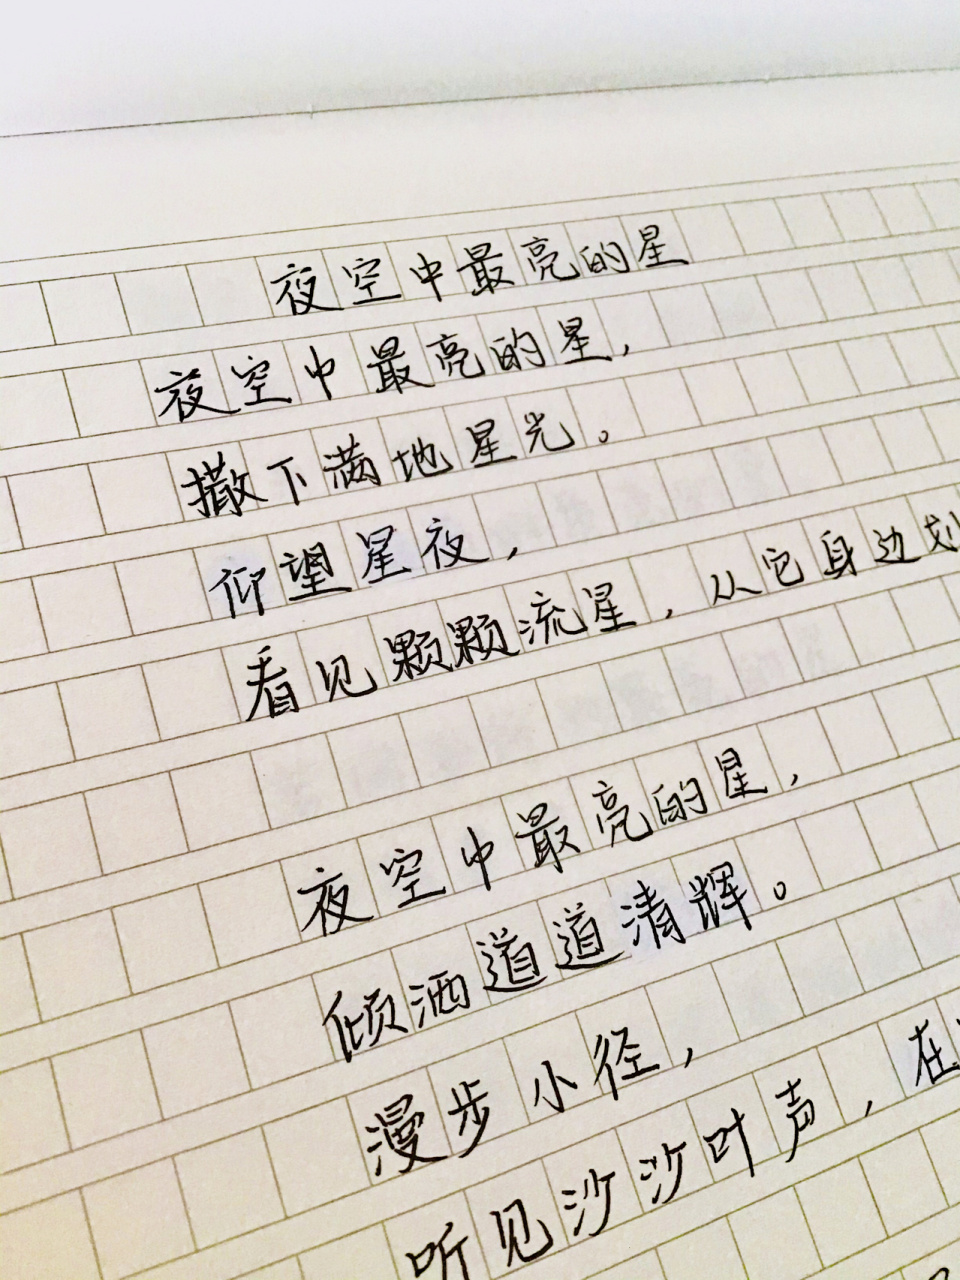 夜空中最亮的星
夜空中最亮的星，
撒下满地星光。
仰望星夜，
看见颗颗流星，从它身边划
夜空中最亮的星，
倾洒道道清辉。
漫步小径，
听见沙沙叶声，在